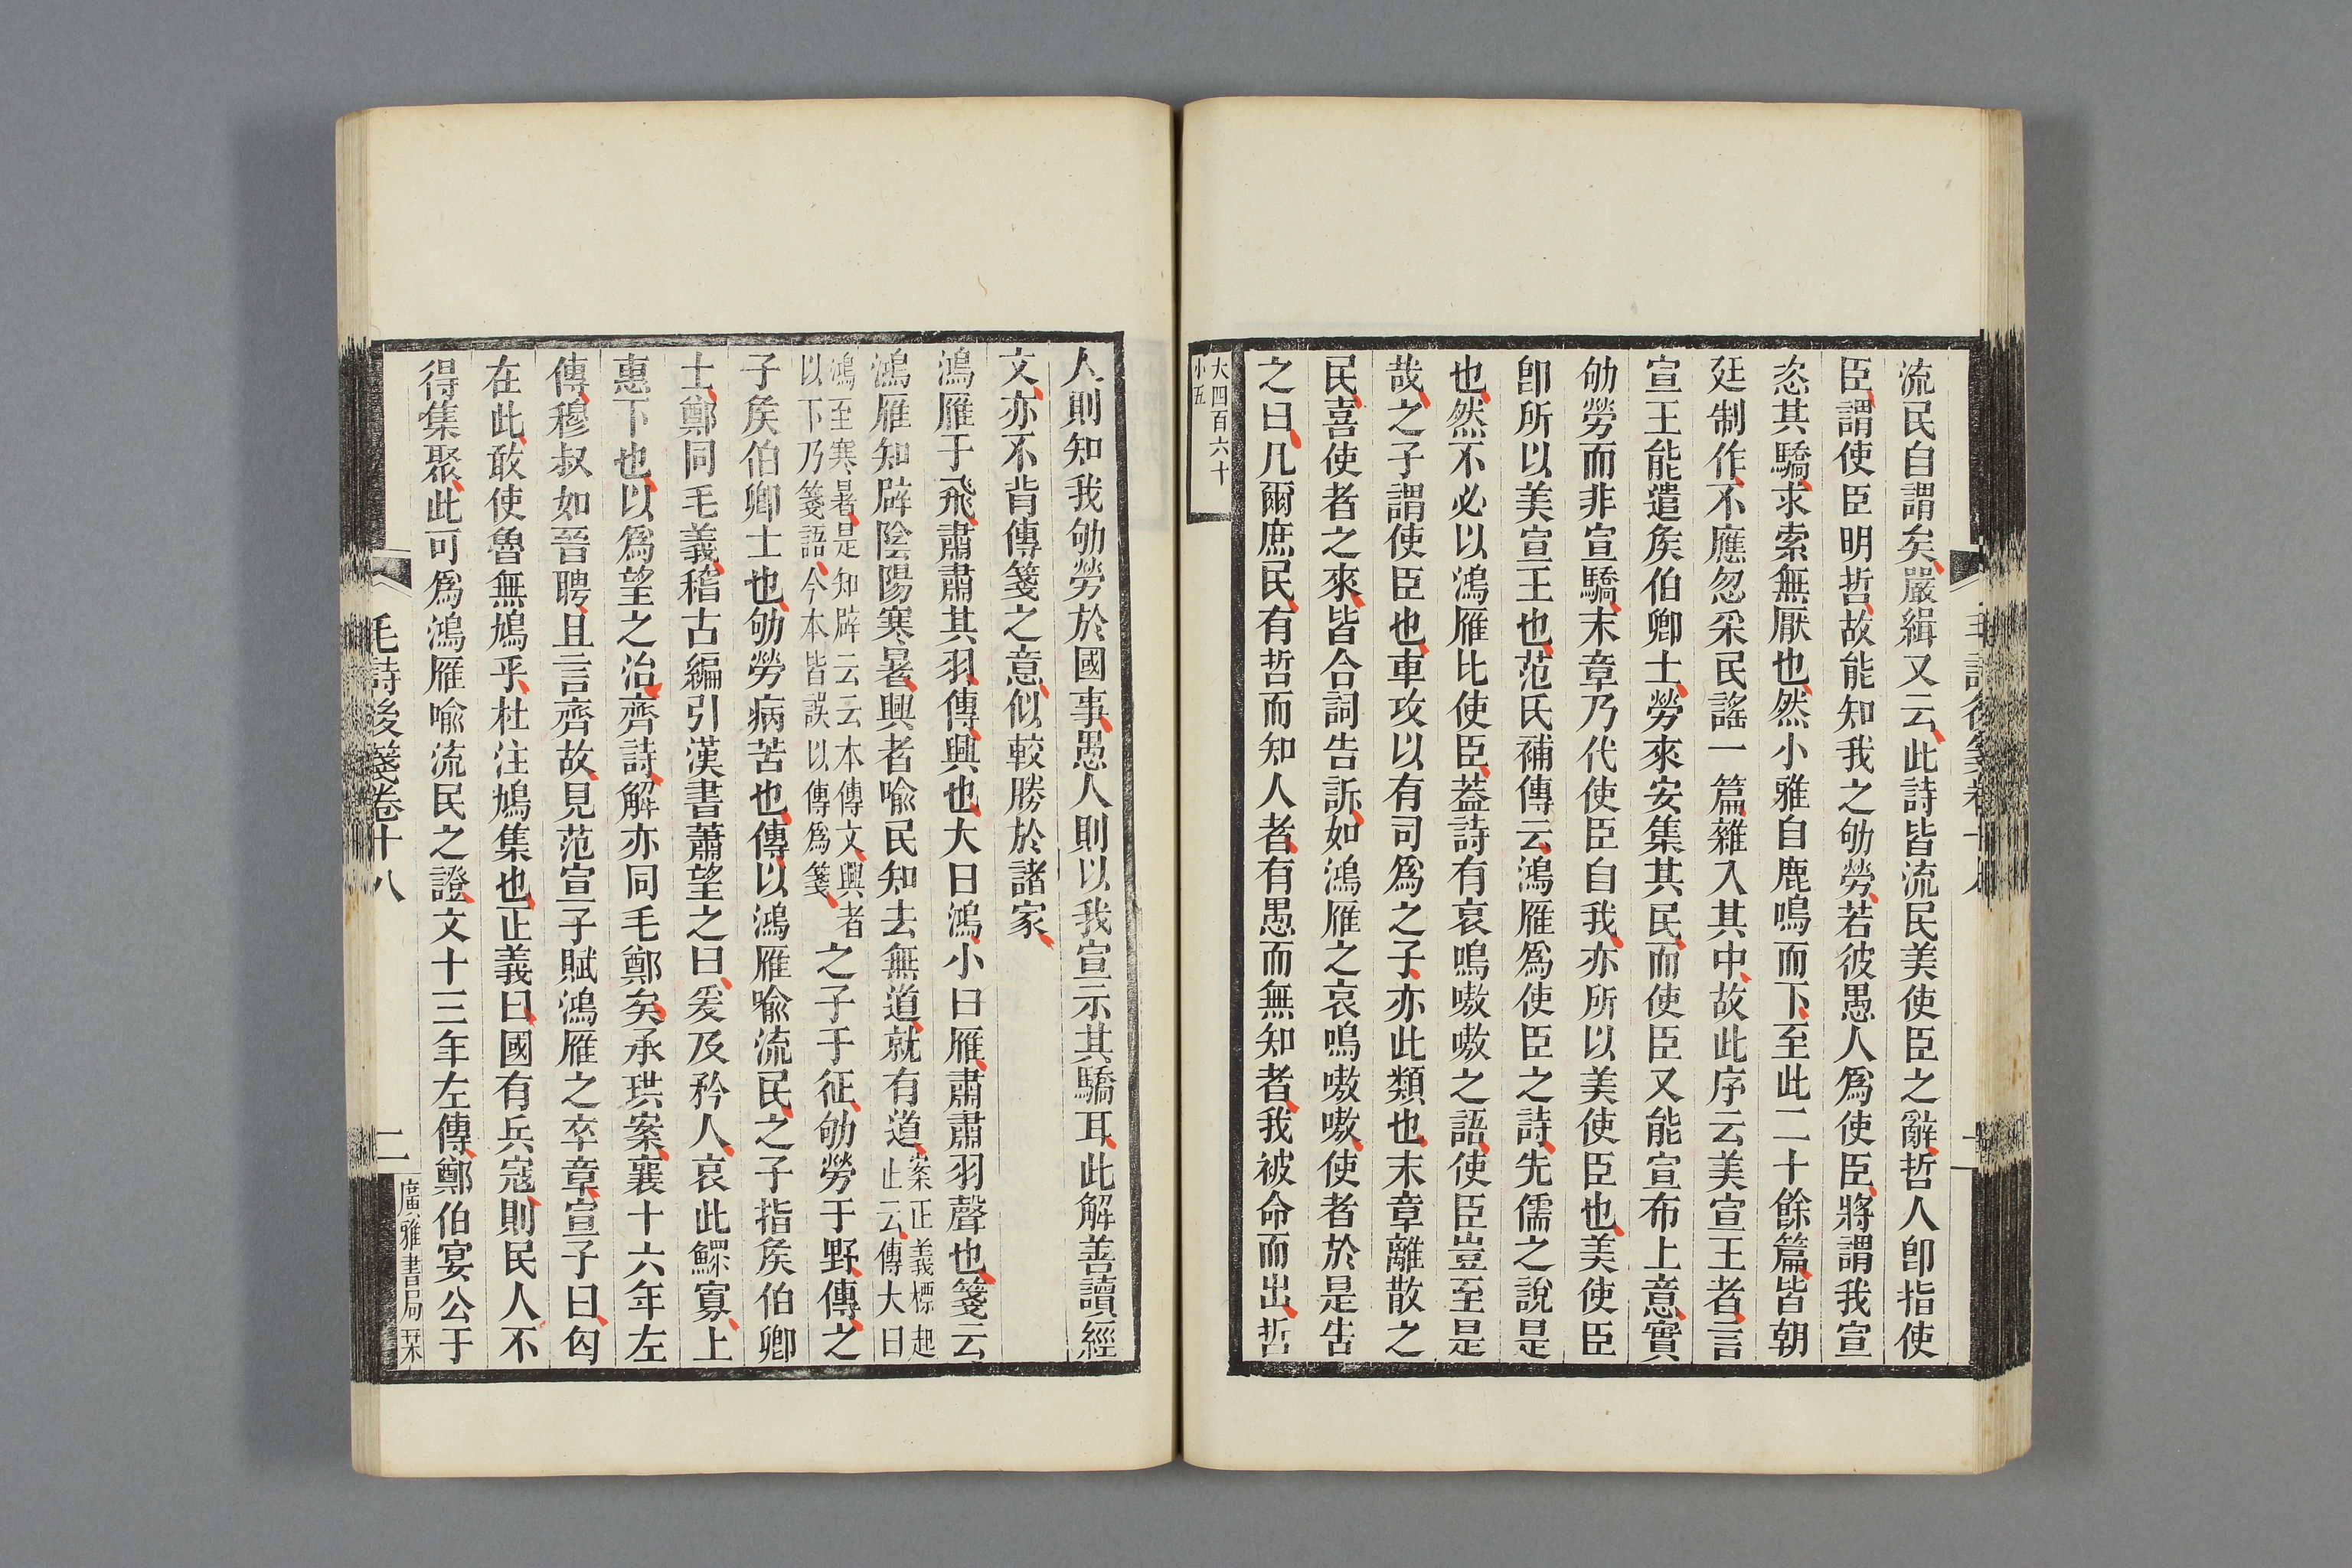 流民自謂矣嚴緝又云此詩皆流民美使臣之辭哲人卽指使
臣謂使臣明哲故能知我之劬勞若彼愚人爲使臣將謂我宣
恣其驕求索無厭也然小雅自鹿鳴而下至此二十餘篇皆朝
廷制作不應忽采民謠一篇雜入其中故此序云美宣王者言
宣王能遣矦伯卿士勞來安集其民而使臣又能宣布上意實
劬勞而非宣驕末章乃代使臣自我亦所以美使臣也美使臣
卽所以美宣王也范氏補傳云鴻雁爲使臣之詩先儒之說是
也然不必以鴻雁比使臣葢詩有哀鳴嗷嗷之語使臣豈至是
哉之子謂使臣也車攻以有司爲之子亦此類也末章離散之
民喜使者之來皆合詞告訴如鴻雁之哀鳴嗷嗷使者於是告
之曰凡爾庶民有哲而知人者有愚而無知者我被命而出哲
大四百六十
小五
人則知我劬勞於國事愚人則以我宣示其驕耳此解善讀經
文亦不背傳箋之意似較勝於諸家
鴻雁于飛肅肅其羽傳興也大曰鴻小曰雁肅肅羽聲也箋云
鴻雁知辟陰陽寒暑興者喻民知去無道就有道案正義標起止云傳大曰
鴻至寒暑是知辟云云本傳文興者以下乃箋語今本皆誤以傳爲箋之子于征劬勞于野傳之
子矦伯卿士也劬勞病苦也傳以鴻雁喻流民之子指矦伯卿
士鄭同毛義稽古編引漢書蕭望之曰爰及矜人哀此鰥寡上
惠下也以爲望之治齊詩解亦同毛鄭矣承珙案襄十六年左
傳穆叔如晉聘且言齊故見范宣子賦鴻雁之卒章宣子曰匄
在此敢使魯無鳩乎杜注鳩集也正義曰國有兵寇則民人不
得集聚此可爲鴻雁喻流民之證文十三年左傳鄭伯宴公于
毛詩後箋卷十八
二
廣雅書局栞